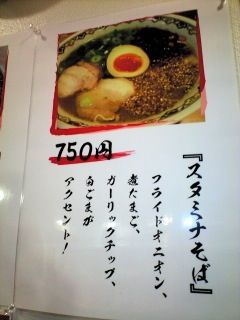 750円
『スタミナそば』
フライドオニオン、
煮たまご、
ガーリックチップ、
白ごまが
アクセント!